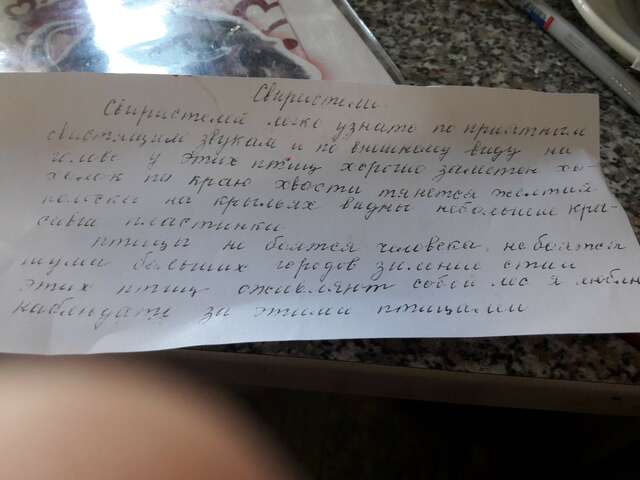 Свиристели.
Свиристелей легко узнать по приятным
свистящим звукам и по внешнему виду на
голове у этих птиц хорошо заметен хо-
холок по краю хвоста тянется желтый
полоска на крыльях видны небольшие кра-
сивые пластинки
птицы не боятся человека, не боятся
шума больших городов зимние стаи
этих птиц оживляют собой лес я люблю
наблюдать за этими птицами